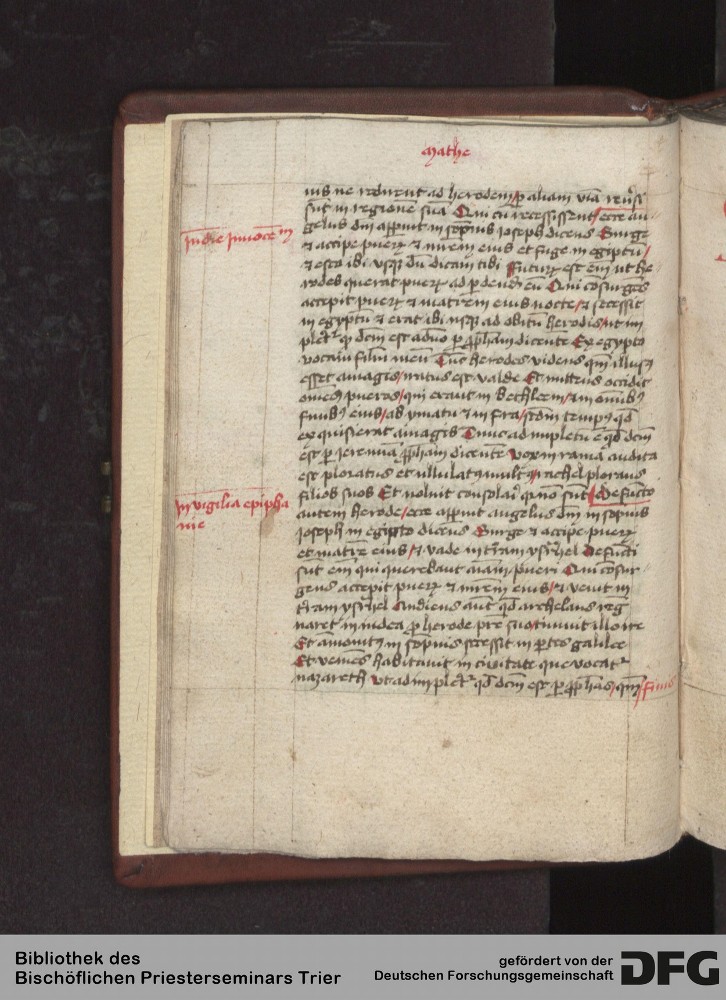 Mathe
nis ne redirent ad herodem / p aliam viā reūsi
sūt in regionē suā Qui cū recessissent / ecce an-
gelus dni apparuit in sompnis ioseph dicens Surge
Jn die Jnnocētū
⁊ accipe puerū ⁊ mrēm eius et fuge in egiptū /
⁊ esto ibi vsqȝ dū dicam tibi Futurū est eī ut he
rodes querat puerū ad pdendū eū Qui cōsurgēs
accepit puerū ⁊ matrem eius nocte / ⁊ secessit
in egyptū ⁊ erat ibi usqȝ ad obitū herodis / ut im
pleretr qd dcm est a dno p pphetam dicentē Ex egypto
vocaui filiū meū Tūc herodes videns qm illusus
esset a magis / iratus est valde Et mittens occidit
omēs pueros / qui erant in bethleem / ⁊ in omībȝ
finibȝ eius / a bimatu ⁊ infra / scdm tempus qd
exquisierat a magis Tunc adimpletū ē qd dcm
est p ieremiā pphetam dicentē Vox in rama audita
est ploratus et ululatus multus / rachel plorans
filios suos Et noluit consolari qr nō sunt / Defuncto
Jn vigilia epipha
nie
autem herode / ecce apparuit angelus dni in sompnis
ioseph in egipto dicens Surge ⁊ accipe puerū
et matrē eius / ⁊ vade in tram ysrahel Defuncti
sūt eī qui querebant aīam pueri Qui cōsur-
gens accepit puerū ⁊ mrēm eius / ⁊ venit in
tram ysrahel Audiens aūt qd archelaus reg
naret in iudea p herode pre suo / timuit illo ire
Et amonitus in sompnis secessit in ptes galilee
Et veniens habitauit in ciuitate que vocatr
nazareth Vt adimpleretr qd dcm est p pphetas / qm / Finis
Bibliothek des
Bischöflichen Priesterseminars Trier
gefördert von der
Deutschen Forschungsgemeinschaft
DFG